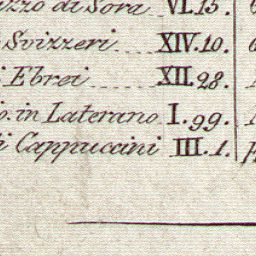 di Sora VI.15.
Svizzeri XIV.10.
Ebrei XII.28.
in Laterano I.99.
i Cappuccini III.1.